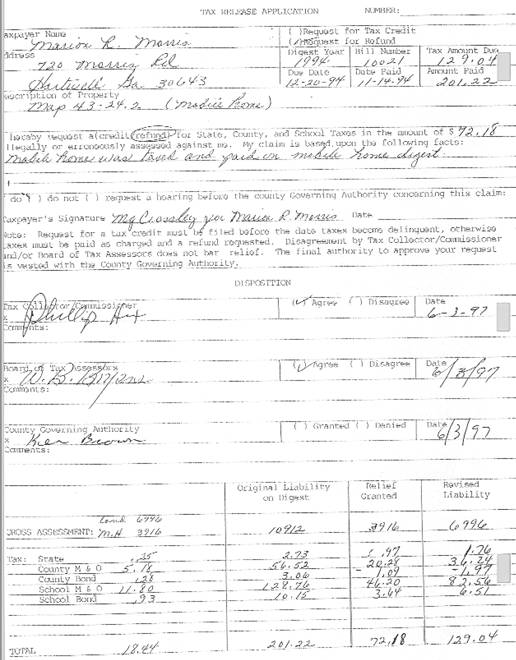 TAX RELEASE APPLICATION NUMBER:
axpayer Name Marion R. Morris ( )Request for Tax Credit
( )Request for Refund
ddress 720 Morris Rd Digest Year 1994 Bill Number 10021 Tax Amount Due 129.04
Hartwell Ga. 30643 Due Date 12-20-94 Date Paid 11-14-94 Amount Paid 201.22
escription of Property
Map 43-24.2 (Mobile Home)
hereby request a(credit/refund) for State, County, and School Taxes in the amount of $ 72.18
llegally or erroneously assessed against me. My claim is based upon the following facts:
Mobile home was taxed and paid on mobile home digest.
do ( ) do not ( ) request a hearing before the county Governing Authority concerning this claim:
axpayer's Signature Mg Crossley for Marion R. Morris Date
ote: Request for a tax credit must be filed before the date taxes become delinquent, otherwise
axes must be paid as charged and a refund requested. Disagreement by Tax Collector/Commissioner
nd/or Board of Tax Assessors does not bar relief. The final authority to approve your request
s vested with the County Governing Authority.
DISPOSITION
Tax Collector/Commissioner ( ) Agree ( ) Disagree Date
x Phillip 6-3-97
Comments:
Board of Tax Assessors ( ) Agree ( ) Disagree Date
x W. D. 6/3/97
Comments:
County Governing Authority ( ) Granted ( ) Denied Date
x Ken Brown 6/3/97
Comments:
Original Liability on Digest Relief Granted Revised Liability
Land 6996
GROSS ASSESSMENT: M.H 3916 10912 3916 6996
Tax: State .25 2.73 .97 1.76
County M & O 5.18 56.52 20.28 36.24
County Bond .28 3.06 1.09 1.97
School M & O 11.80 128.76 46.20 82.56
School Bond .93 10.15 3.64 6.51
TOTAL 18.44 201.22 72.18 129.04